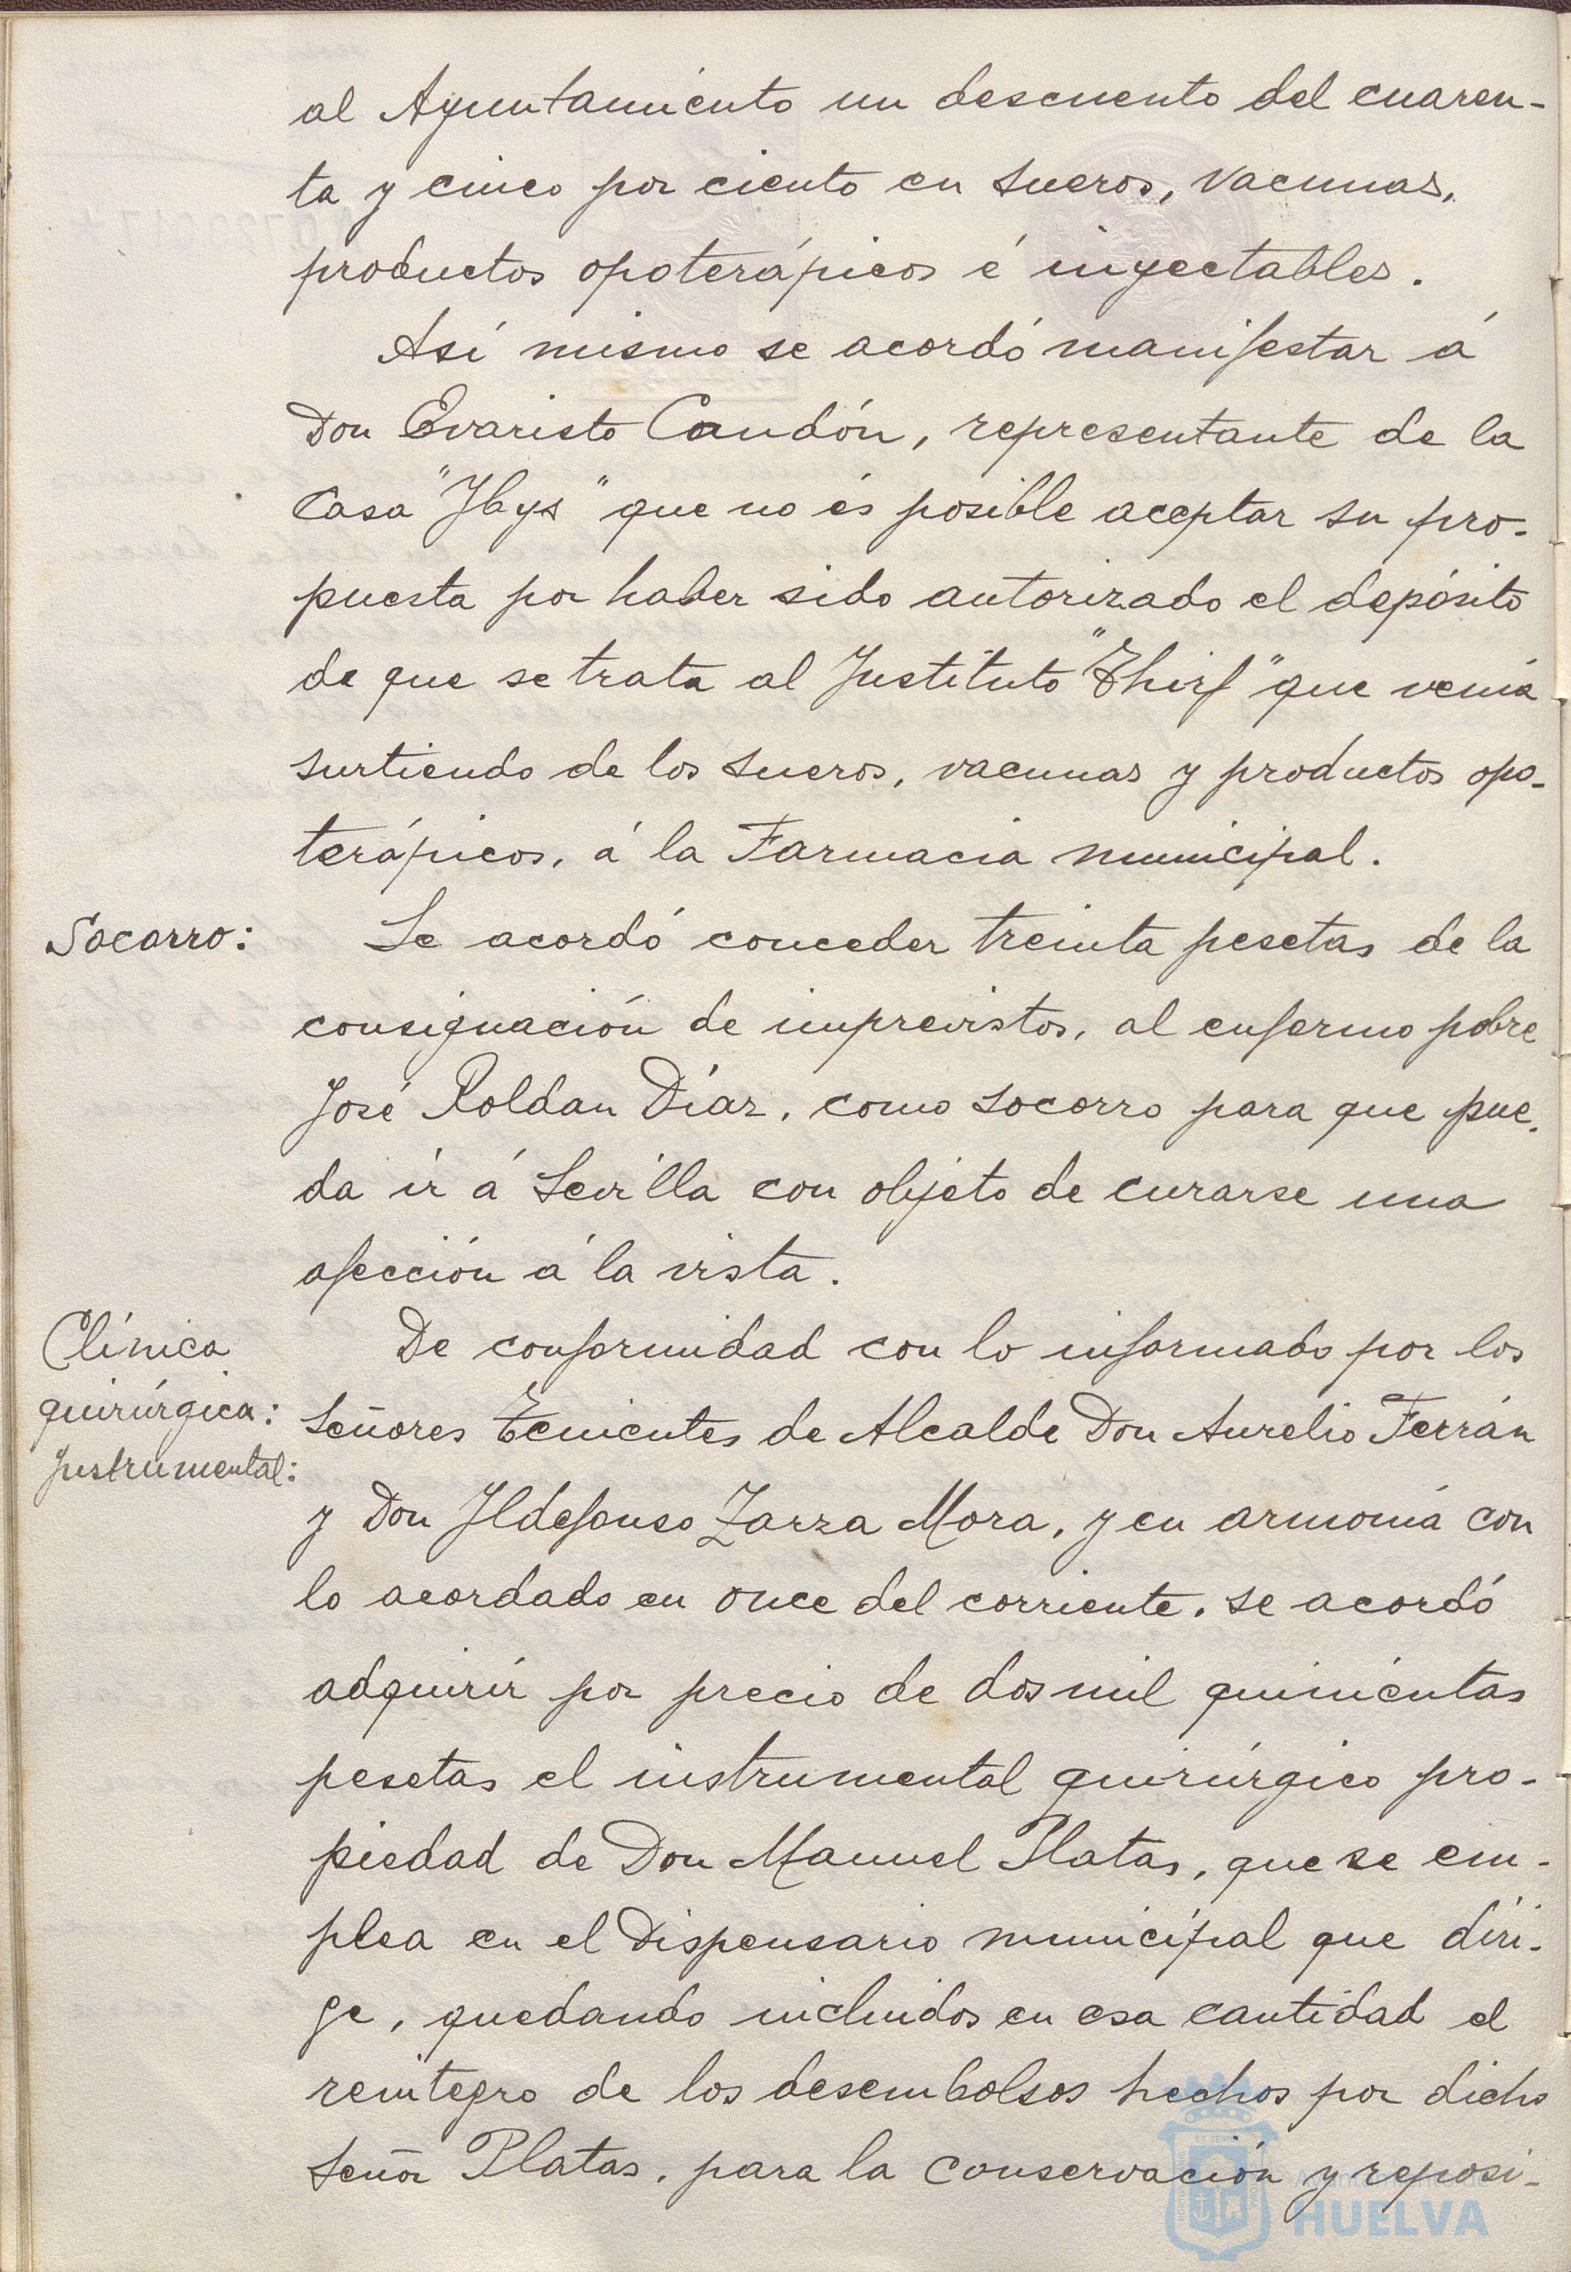 al Ayuntamiento un descuento del cuaren-
ta y cinco por ciento en sueros, vacunas,
productos opoterápicos é inyectables.
Así mismo se acordó manifestar á
Don Evaristo Candón, representante de la
Casa "Ybys" que no és posible aceptar su pro-
puesta por haber sido autorizado el depósito
de que se trata al Instituto "Thirf" que venía
surtiendo de los sueros, vacunas y productos opo-
terápicos, á la Farmacia municipal.
Socorro:
Se acordó conceder treinta pesetas de la
consignación de imprevistos, al enfermo pobre
José Roldan Díaz, como socorro para que pue-
da ir á Sevilla con objeto de curarse una
afección á la vista.
Clínica
quirúrgica:
Instrumental:
De conformidad con lo informado por los
Señores Tenientes de Alcalde Don Aurelio Ferrán
y Don Ildefonso Zarza Mora, y en armonía con
lo acordado en once del corriente, se acordó
adquirir por precio de dos mil quinientas
pesetas el instrumental quirúrgico pro-
piedad de Don Manuel Platas, que se em-
plea en el Dispensario municipal que diri-
ge, quedando incluidos en esa cantidad el
reintegro de los desembolsos hechos por dicho
Señor Platas, para la conservación y reposi-
Ayuntamiento de
HUELVA